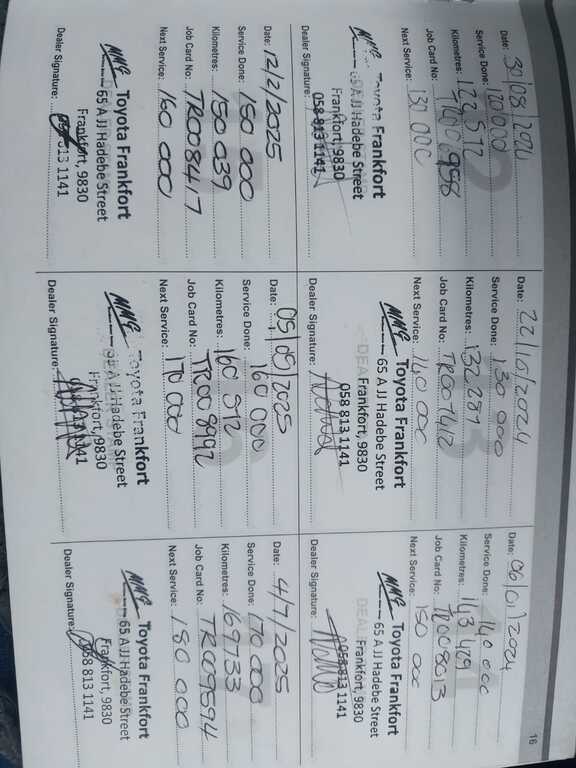 16
Date: 30/08/2024
Service Done: 120 000
Kilometres: 122 512
Job Card No: TR006958
Next Service: 130 000
MMG Toyota Frankfort
65 A JJ Hadebe Street
Frankfort, 9830
058 813 1141
Dealer Signature:
Date: 22/10/2024
Service Done: 130 000
Kilometres: 132 287
Job Card No: TR007412
Next Service: 140 000
MMG Toyota Frankfort
65 A JJ Hadebe Street
Frankfort, 9830
058 813 1141
Dealer Signature:
Date: 06/01/2024
Service Done: 140 000
Kilometres: 143 479
Job Card No: TR008013
Next Service: 150 000
MMG Toyota Frankfort
65 A JJ Hadebe Street
Frankfort, 9830
058 813 1141
Dealer Signature:
Date: 12/2/2025
Service Done: 150 000
Kilometres: 150 039
Job Card No: TR008417
Next Service: 160 000
MMG Toyota Frankfort
65 A JJ Hadebe Street
Frankfort, 9830
058 813 1141
Dealer Signature:
Date: 05/05/2025
Service Done: 160 000
Kilometres: 160 312
Job Card No: TR008992
Next Service: 170 000
MMG Toyota Frankfort
65 A JJ Hadebe Street
Frankfort, 9830
058 813 1141
Dealer Signature:
Date: 4/7/2025
Service Done: 170 000
Kilometres: 169733
Job Card No: TR009594
Next Service: 180 000
MMG Toyota Frankfort
65 A JJ Hadebe Street
Frankfort, 9830
058 813 1141
Dealer Signature: